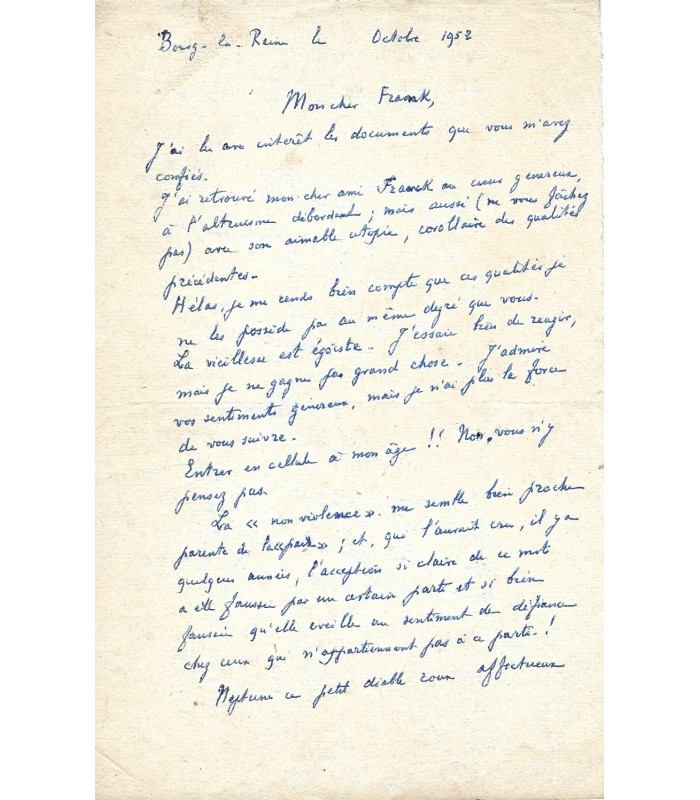 Bourg-la-Reine le Octobre 1952
Mon cher Franck,
J'ai lu avec intérêt les documents que vous m'avez
confiés.
J'ai retrouvé mon cher ami Franck au cœur généreux,
à l'altruisme débordant ; mais aussi (ne vous fâchez
pas) avec son aimable utopie, corollaire des qualités
précédentes.
Hélas, je me rends bien compte que ces qualités je
ne les possède pas au même degré que vous.
La vieillesse est égoïste. J'essaie bien de réagir,
mais je ne gagne pas grand chose. J'admire
vos sentiments généreux, mais je n'ai plus la force
de vous suivre.
Entrer en cellule à mon âge !! Non, vous n'y
pensez pas.
La « non violence » me semble bien proche
parente de la « paix » ; et, qui l'aurait cru, il y a
quelques années, l'acception si claire de ce mot
a été faussée par un certain parti et si bien
faussée qu'elle éveille un sentiment de défiance
chez ceux qui n'appartiennent pas à ce parti !
Neptune ce petit diable roux affectueux